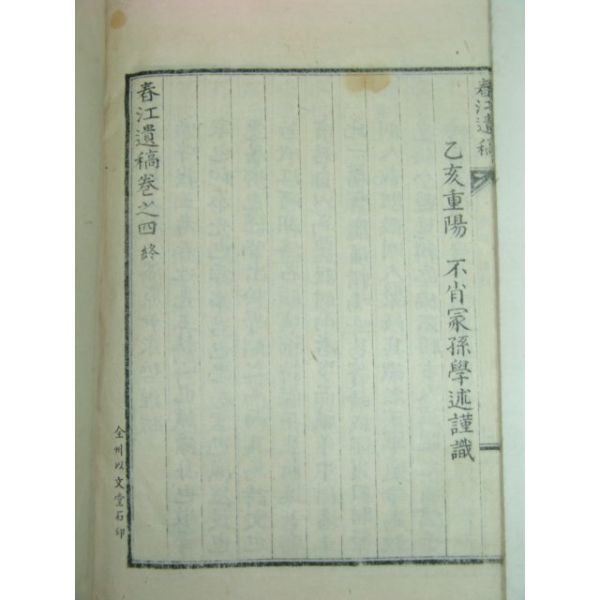 春江遺稿
乙亥重陽 不肖冢孫學述謹識
春江遺稿卷之四 終
全州以文堂石印